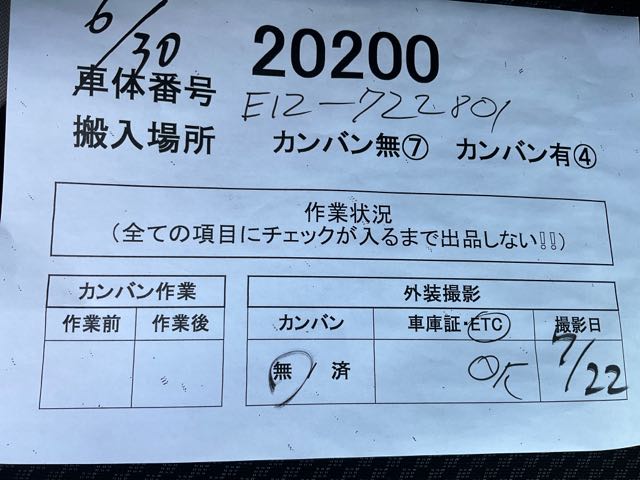 6/30
20200
車体番号 E12-722801
搬入場所 カンバン無⑦ カンバン有④
作業状況
(全ての項目にチェックが入るまで出品しない!!)
カンバン作業 外装撮影
作業前 作業後 カンバン 車庫証・ETC 撮影日
無 / 済 OK 7/22